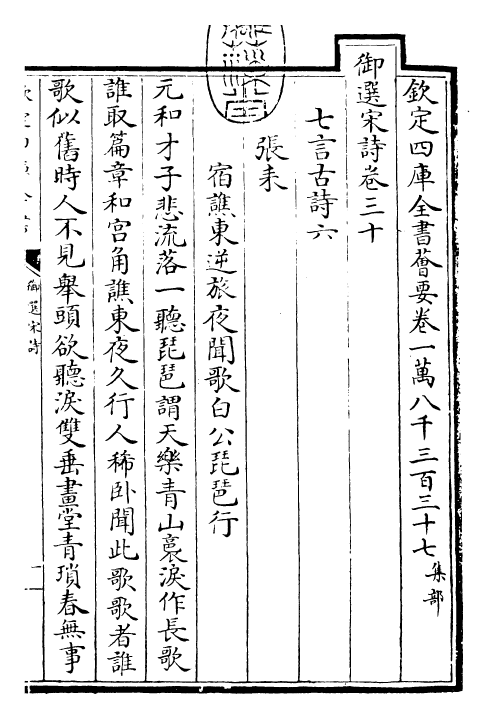 欽定四庫全書薈要卷一萬八千三百三十七集部
御選宋詩卷三十
七言古詩六
張耒
宿譙東逆旅夜聞歌白公琵琶行
元和才子悲流落一聽琵琶謂天樂青山裛淚作長歌
誰取篇章和宮角譙東夜久行人稀卧聞此歌歌者誰
歌似舊時人不見舉頭欲聽淚雙垂畫堂青瑣春無事
御選宋詩
一